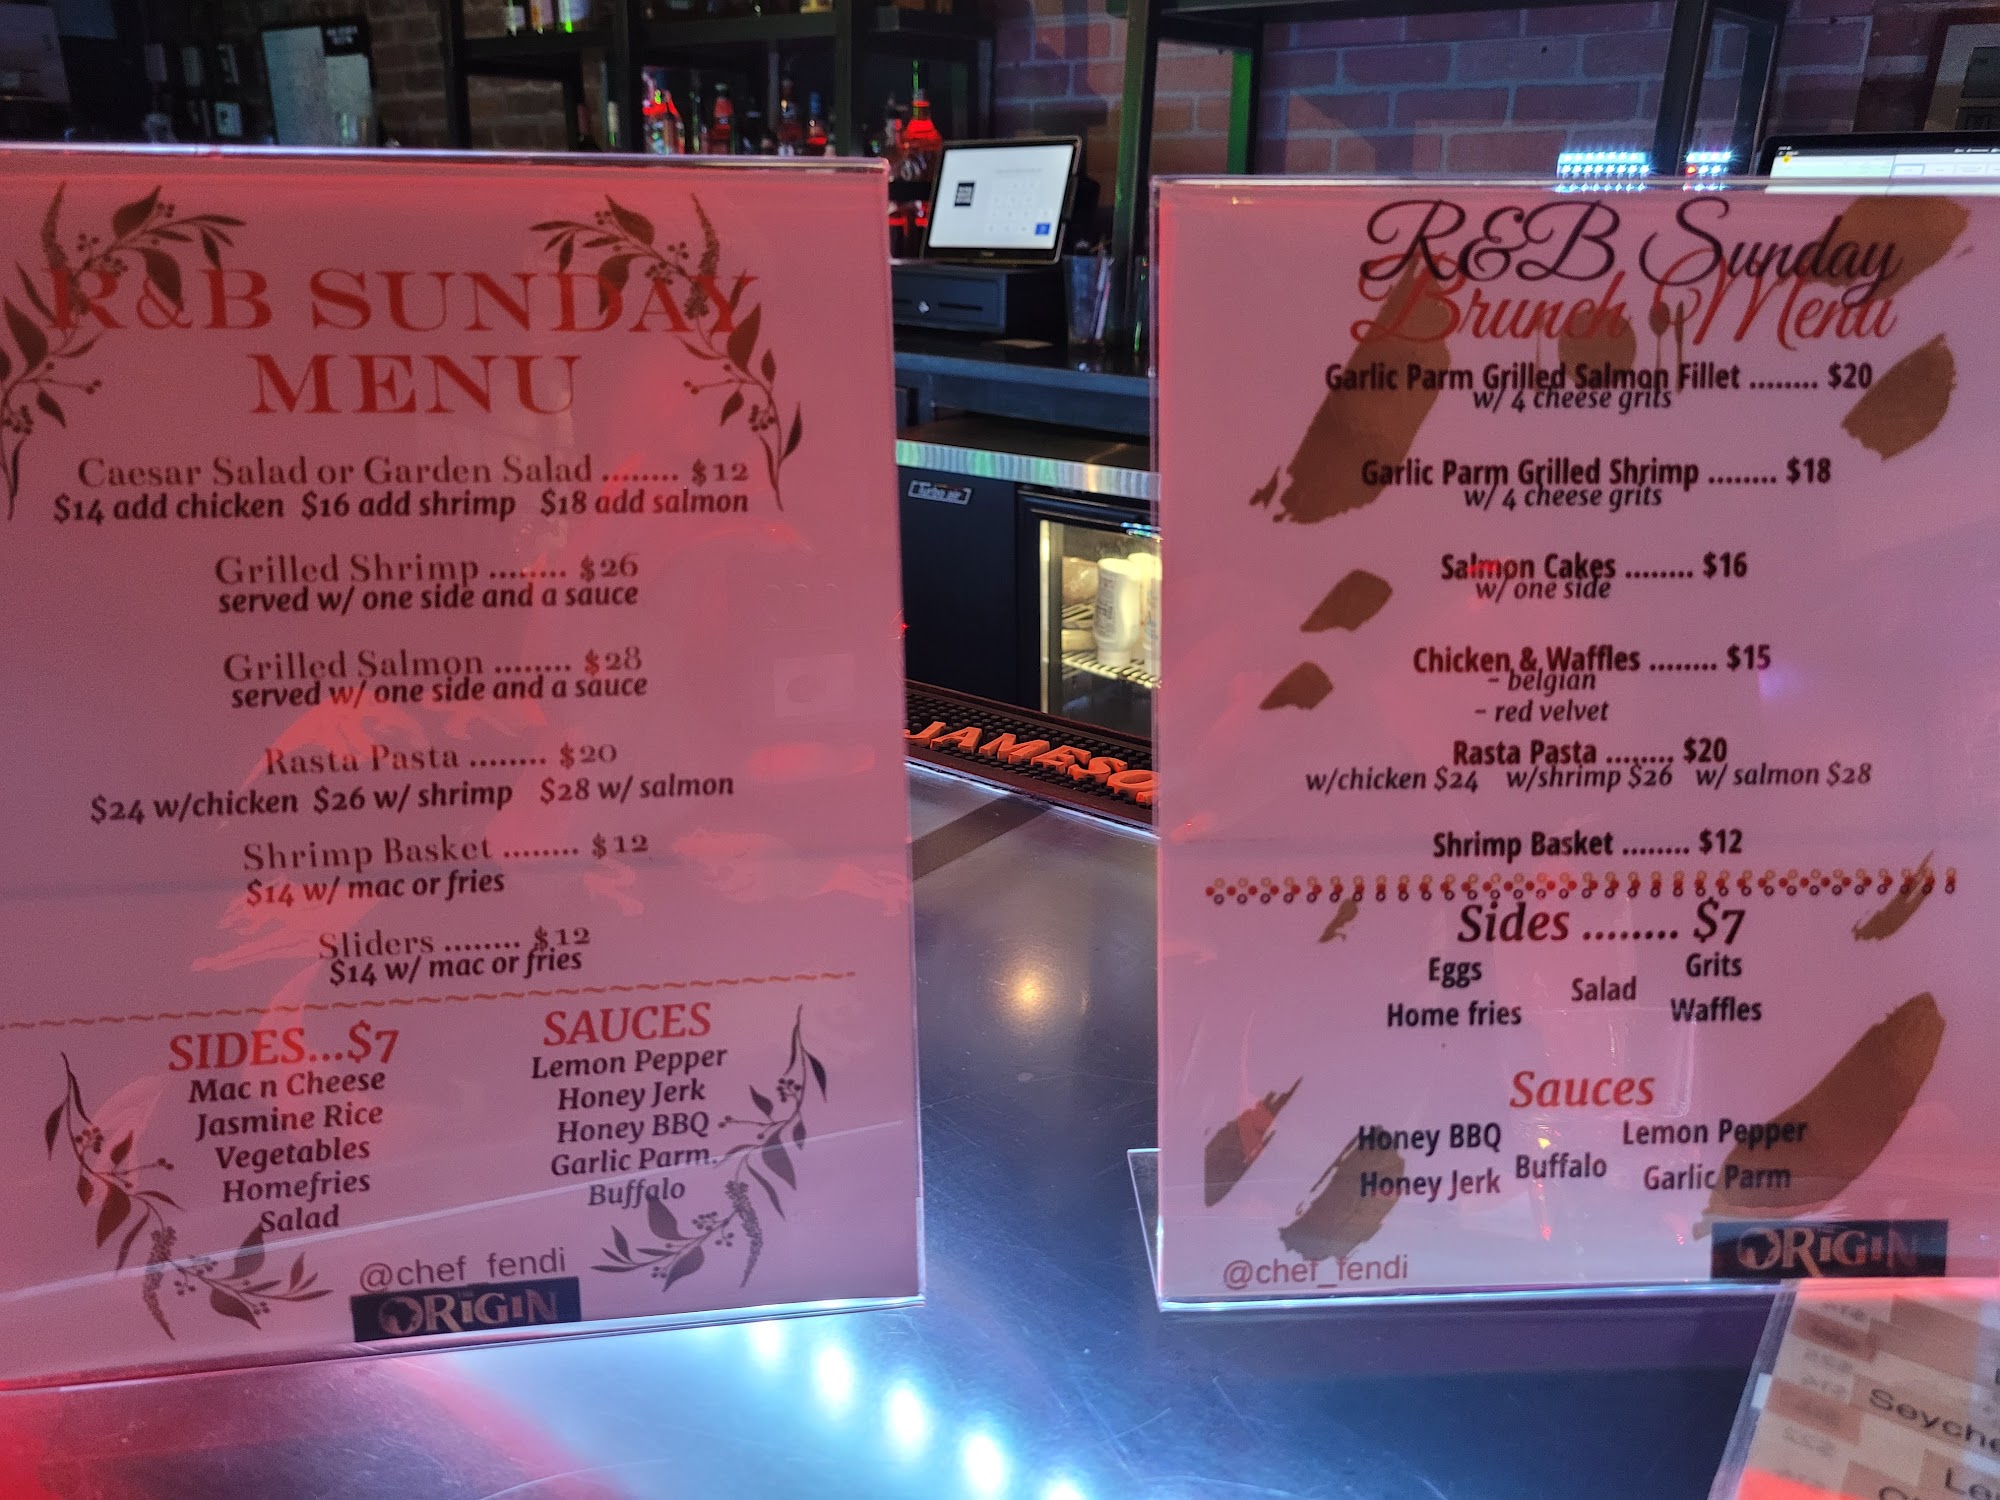 R&B SUNDAY
MENU
Caesar Salad or Garden Salad ........ $12
$14 add chicken $16 add shrimp $18 add salmon
Grilled Shrimp ........ $26
served w/ one side and a sauce
Grilled Salmon ........ $28
served w/ one side and a sauce
Rasta Pasta ........ $20
$24 w/chicken $26 w/ shrimp $28 w/ salmon
Shrimp Basket ........ $12
$14 w/ mac or fries
Sliders ........ $12
$14 w/ mac or fries
SIDES...$7
Mac n Cheese
Jasmine Rice
Vegetables
Homefries
Salad
SAUCES
Lemon Pepper
Honey Jerk
Honey BBQ
Garlic Parm.
Buffalo
@chef_fendi
ORiGiN
JAMESO
R&B Sunday
Brunch Menu
Garlic Parm Grilled Salmon Fillet ........ $20
w/ 4 cheese grits
Garlic Parm Grilled Shrimp ........ $18
w/ 4 cheese grits
Salmon Cakes ........ $16
w/ one side
Chicken & Waffles ........ $15
- belgian
- red velvet
Rasta Pasta ........ $20
w/chicken $24 w/shrimp $26 w/ salmon $28
Shrimp Basket ........ $12
Sides ........ $7
Eggs
Salad
Grits
Home fries
Waffles
Sauces
Honey BBQ
Buffalo
Lemon Pepper
Honey Jerk
Garlic Parm
@chef_fendi
ORiGiN
Seyche